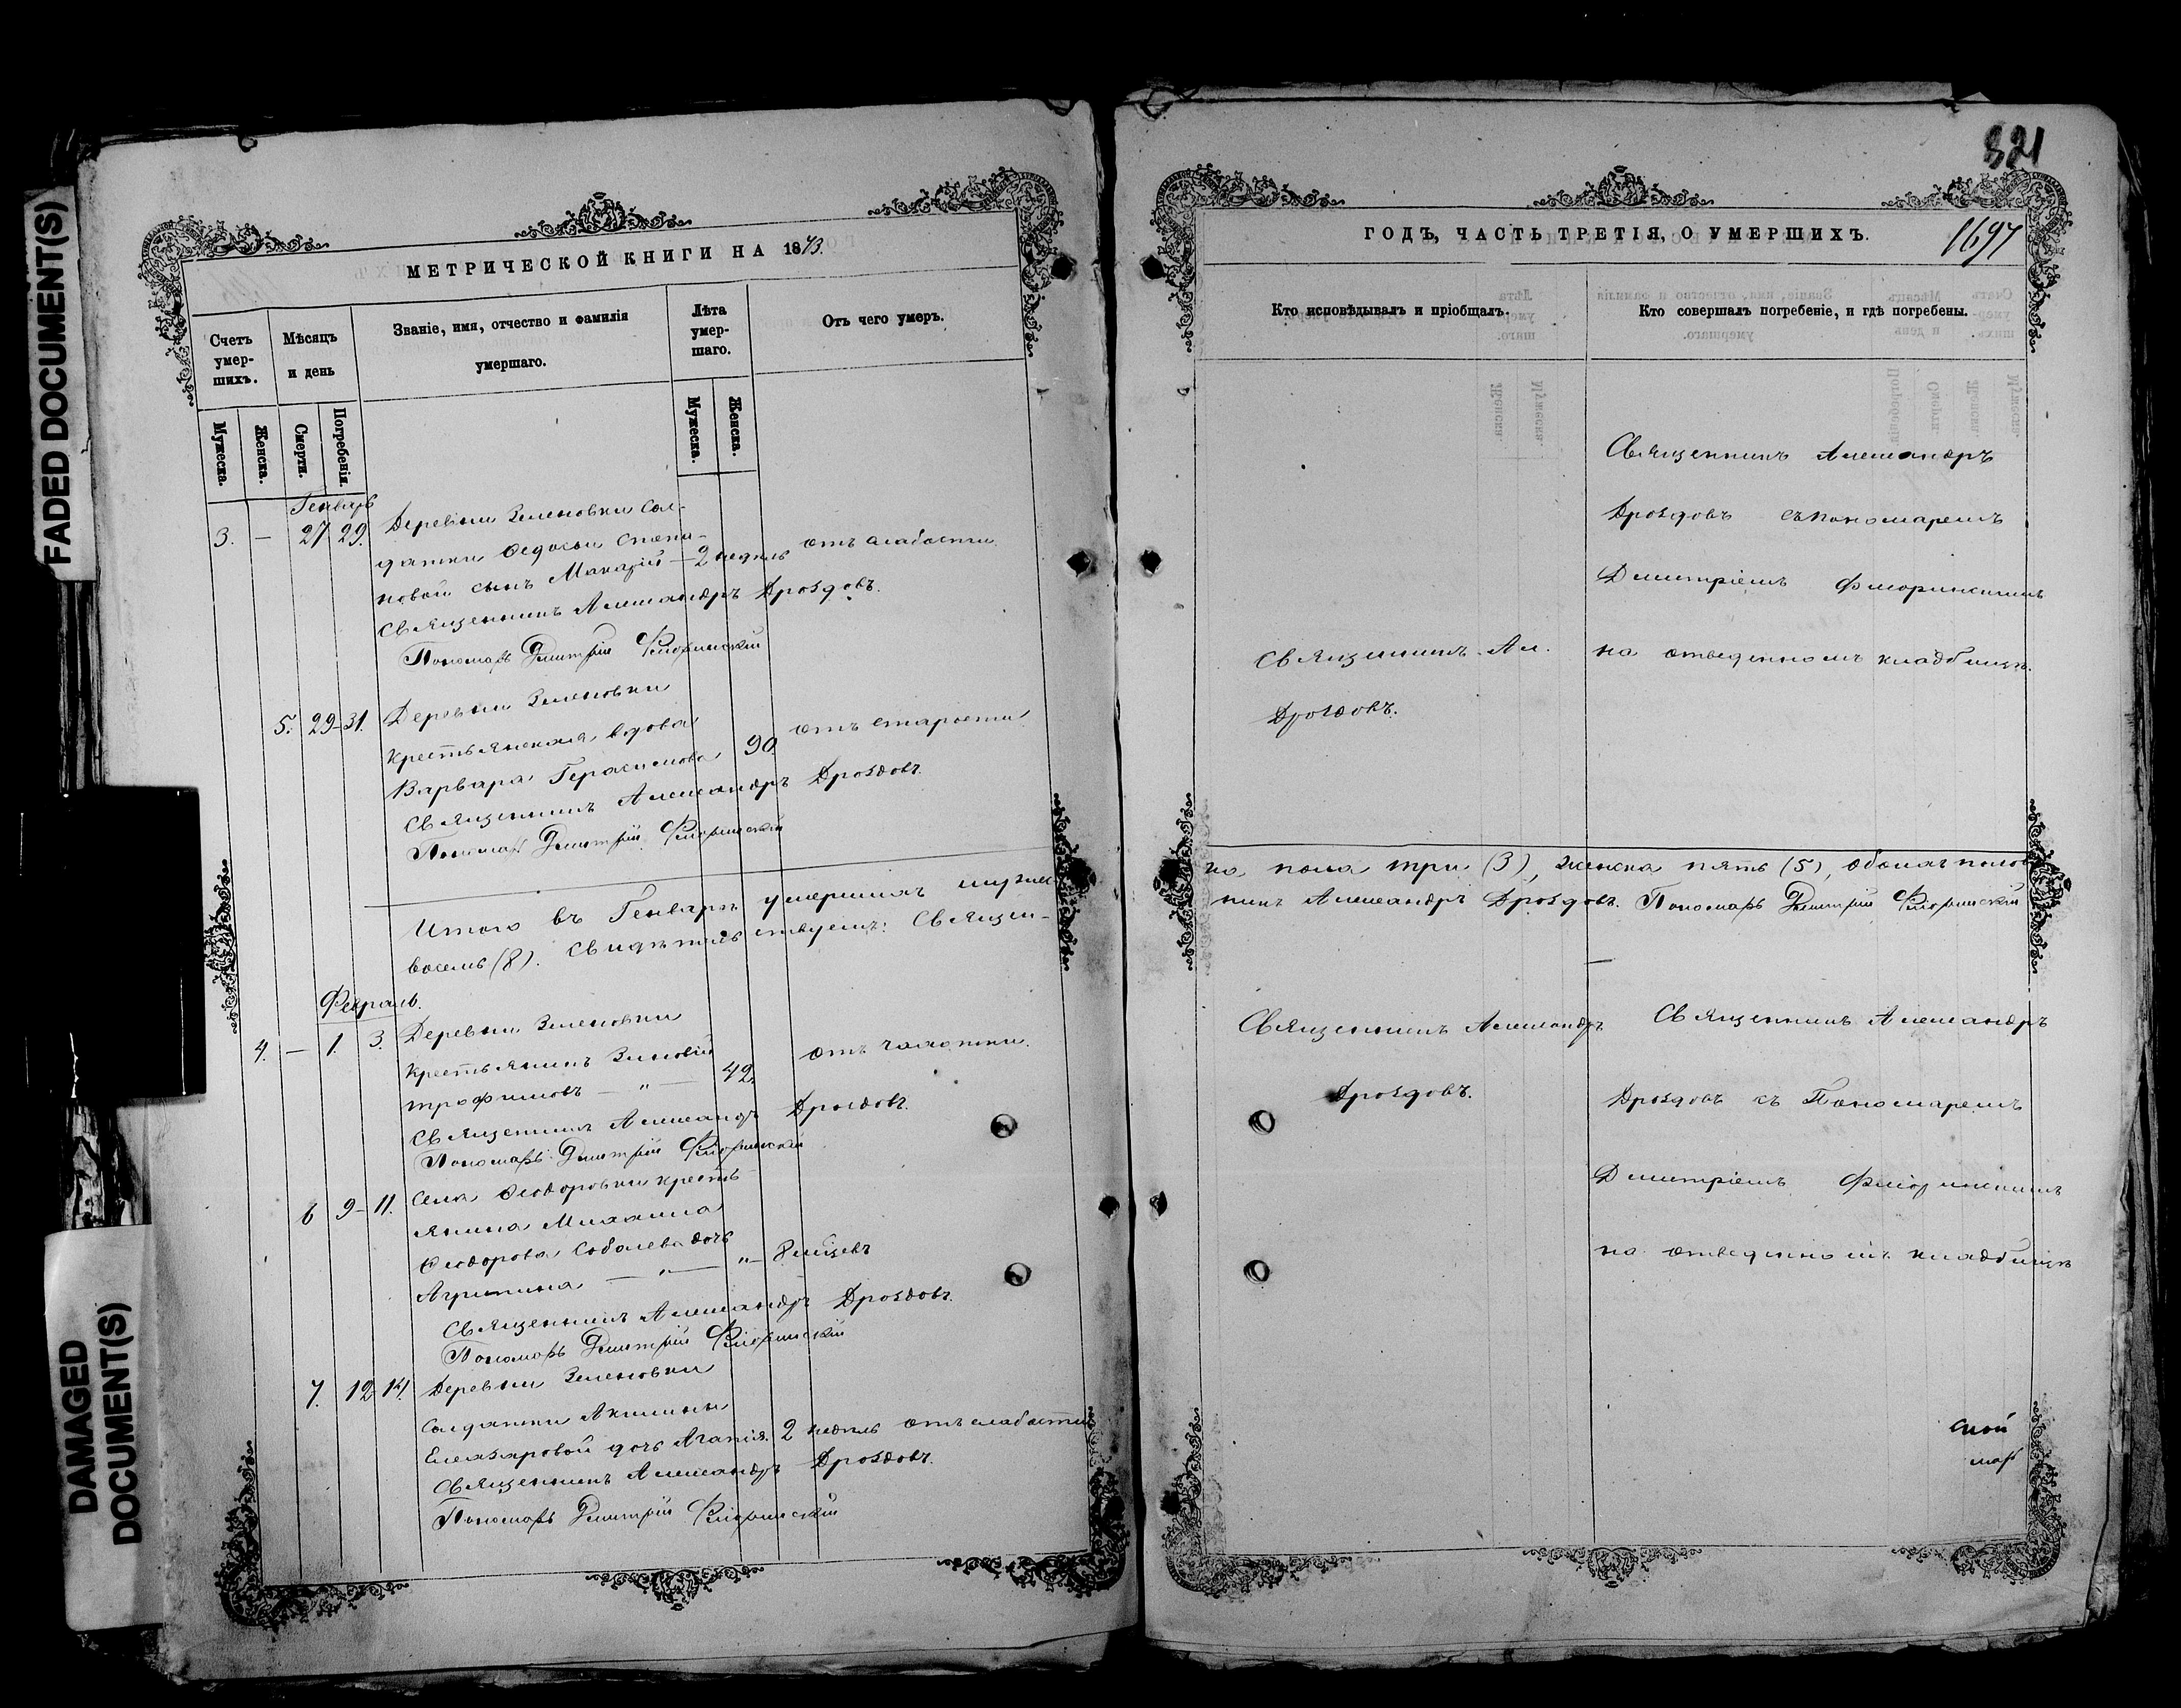 FADED DOCUMENT(S)
DAMAGED
DOCUMENT(S)
МЕТРИЧЕСКОЙ КНИГИ НА 1873.
Счетъ
умер-
шихъ.
Мѣсяцъ
и день
Званіе, имя, отчество и фамилія
умершаго.
Лѣта
умер-
шаго.
Отъ чего умеръ.
Мужеска.
Женска.
Смерти.
Погребенія.
Мужеска.
Женска.
Генварь
3. — 27 29. Деревни Зеленовки сол-
датки Ѳедосьи Степа-
новой сынъ Макарій — 2 недѣль отъ слабости
Священникъ Александръ Дроздовъ.
Пономарь Дмитрій Флоринскій
5. 29-31. Деревни Зеленовки
крестьянская вдова
Варвара Герасимова 90. отъ старости
Священникъ Александръ Дроздовъ.
Пономарь Дмитрій Флоринскій
Итого въ Генварѣ умершихъ мужес-
восемь (8). Свидѣтельствуемъ: Священ-
Февраль.
4. — 1. 3. Деревни Зеленовки
крестьянинъ Зиновій
Трофимовъ — " — 42. отъ чахотки.
Священникъ Александръ Дроздовъ.
Пономарь Дмитрій Флоринскій
6 9-11. Села Ѳеодоровки кресть-
янина Михаила
Ѳеодорова Соболева дочь
Агрипина — " — " — 8 мѣсцевъ
Священникъ Александръ Дроздовъ.
Пономарь Дмитрій Флоринскій
7. 12-14. Деревни Зеленовки
солдатки Акилины
Елеазаровой дочь Агапія. 2 недѣль отъ слабости
Священникъ Александръ Дроздовъ.
Пономарь Дмитрій Флоринскій
821
1697
ГОДЪ, ЧАСТЬ ТРЕТІЯ, О УМЕРШИХЪ.
Кто исповѣдывалъ и пріобщалъ.
Кто совершалъ погребеніе, и гдѣ погребены.
Священникъ Александръ
Дроздовъ съ пономаремъ
Дмитріемъ Флоринскимъ
Священникъ Ал. на отведенномъ кладбищѣ.
Дроздовъ.
ка пола три (3), женска пять (5), обоихъ половъ
никъ Александръ Дроздовъ. Пономарь Дмитрій Флоринскій
Священникъ Александръ Священникъ Александръ
Дроздовъ. Дроздовъ съ Пономаремъ
Дмитріемъ Флоринскимъ
на отведенномъ кладбищѣ